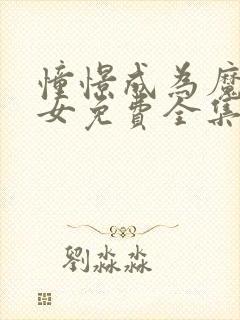 憧憬成为魔
女免費全集
劉淼淼